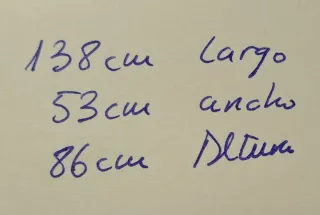 138cm Largo
53cm ancho
86cm Altura